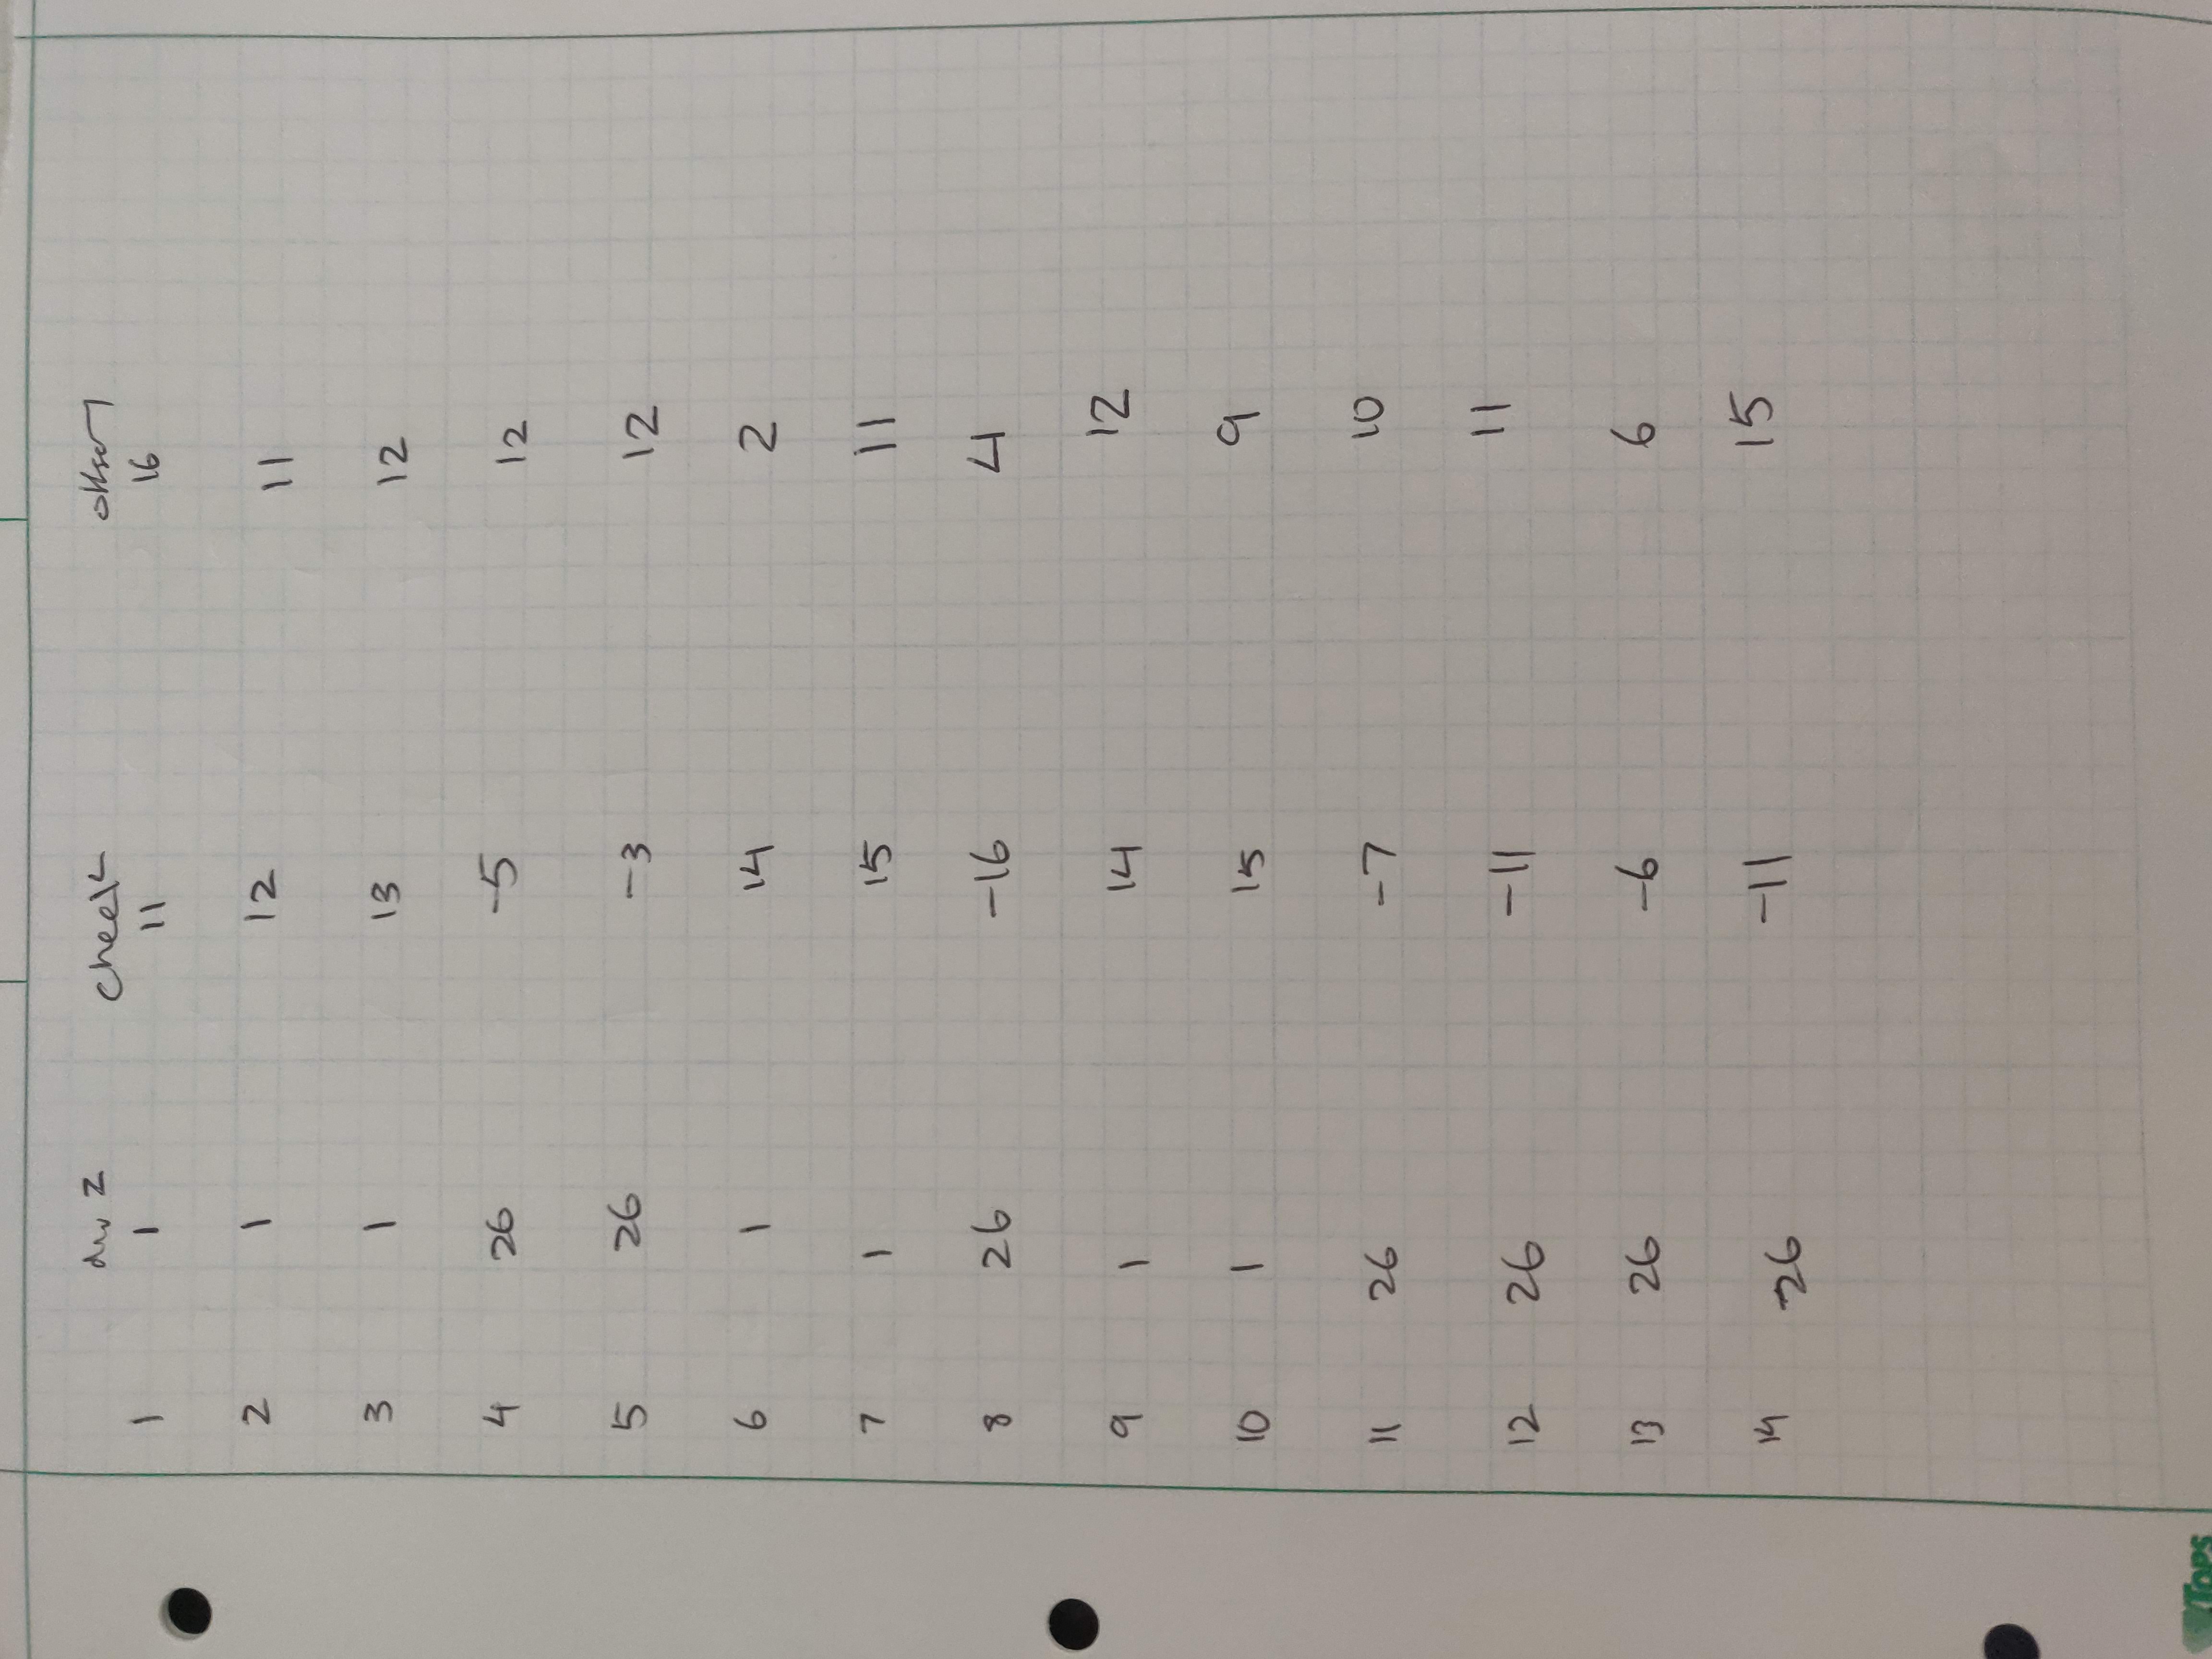 div z check offset
1 1 11 16
2 1 12 11
3 1 13 12
4 26 -5 12
5 26 -3 12
6 1 14 2
7 1 15 11
8 26 -16 4
9 1 14 12
10 1 15 9
11 26 -7 10
12 26 -11 11
13 26 -6 6
14 26 -11 15
TOPS